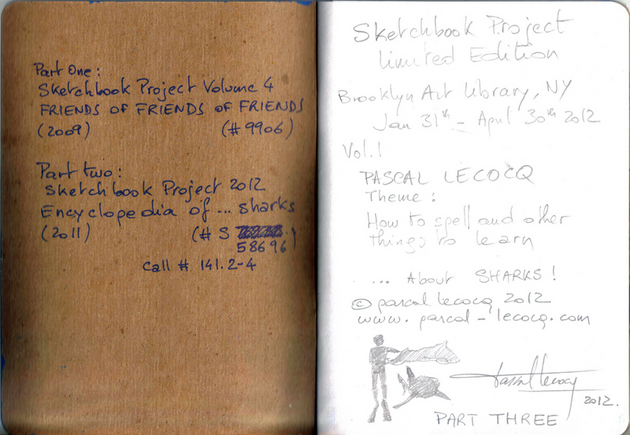 Part One :
Sketchbook Project Volume 4
FRIENDS OF FRIENDS OF FRIENDS
(2009) (# 9906)
Part two :
Sketchbook Project 2012
Encyclopedia of ... sharks
(2011) (# S
58696)
Call # 141.2-4
Sketchbook Project
limited Edition
Brooklyn Art library, NY
Jan 31th - April 30th 2012
Vol. 1
PASCAL LECOCQ
Theme :
How to spell and other
things to learn
... About SHARKS !
© pascal lecocq 2012
www. pascal - lecocq. com
Pascal Lecocq
2012.
PART THREE